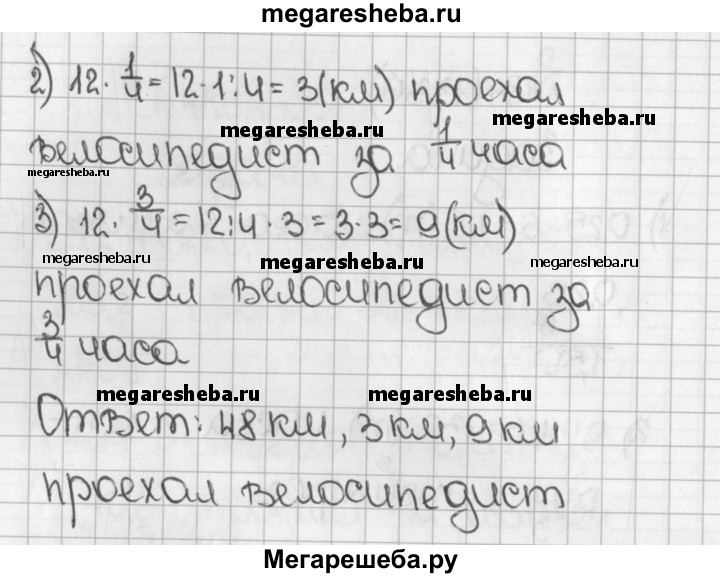 megaresheba.ru
2) 12 · 1/4 = 12 · 1 : 4 = 3 (км) проехал
megaresheba.ru megaresheba.ru
велосипедист за 1/4 часа
megaresheba.ru
3) 12 · 3/4 = 12 : 4 · 3 = 3 · 3 = 9 (км)
megaresheba.ru megaresheba.ru megaresheba.ru
проехал велосипедист за
3/4 часа
megaresheba.ru megaresheba.ru
Ответ: 48 км, 3 км, 9 км
проехал велосипедист
Мегарешеба.ру